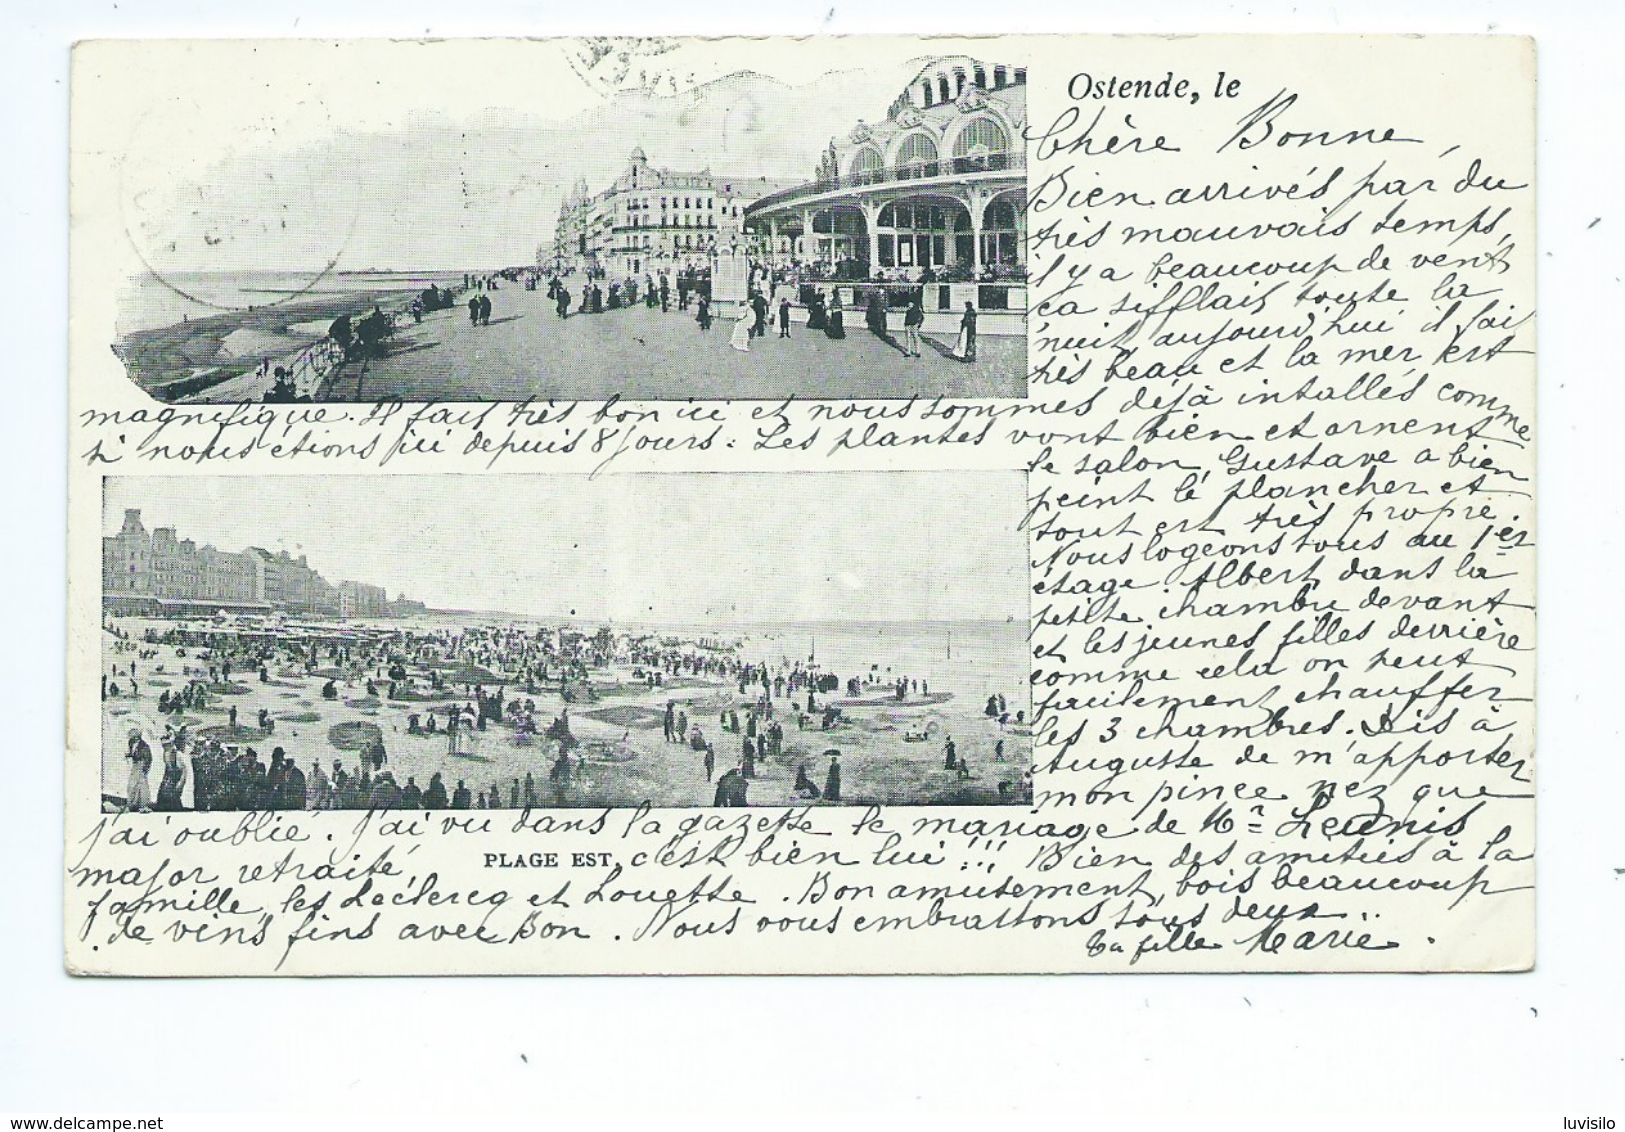 Ostende, le
Chère Bonne,
Bien arrivés par du
très mauvais temps,
il y a beaucoup de vent
ça sifflait toute la
nuit aujourd'hui il fai
très beau et la mer est
magnifique. Il fait très bon ici et nous sommes déjà intallés comme
si nous étions ici depuis 8 jours. Les plantes vont bien et ornent
le salon, Gustave a bien
peint le plancher et
tout est très propre.
Nous logeons tous au 1er
étage. Albert dans la
petite chambre devant
et les jeunes filles derrière
comme cela on peut
facilement chauffer
les 3 chambres. Dis à
Auguste de m'apporter
mon pince nez que
j'ai oublié. J'ai vu dans la gazette le mariage de Mr Leunis
major retraité, PLAGE EST. c'est bien lui !!! Bien des amitiés à la
famille, les Leclercq et Louette. Bon amusement, bois beaucoup
de vins fins avec Bon. Nous vous embrassons tous deux.
Ta fille Marie.
www.delcampe.net
luvisilo